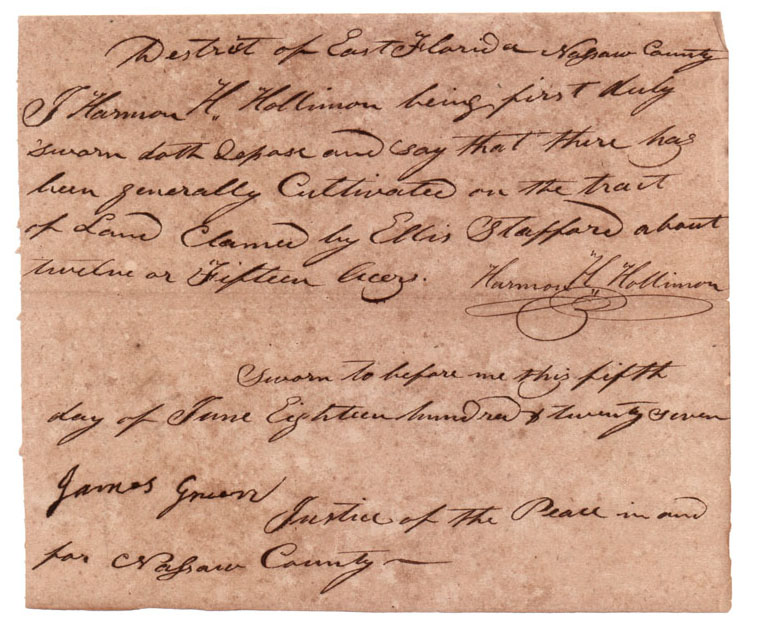 Destrict of East Florida Nassaw County
I Harmon H. Hollimon being first duly
sworn doth depose and say that there has
been generally Cultivated on the tract
of Land Clamed by Ellis Stafford about
twelve or Fifteen Acers. Harmon "H." Hollimon
Sworn to before me this fifth
day of June Eighteen hundred & twenty seven
James Green
Justice of the Peace in and
for Nassaw County